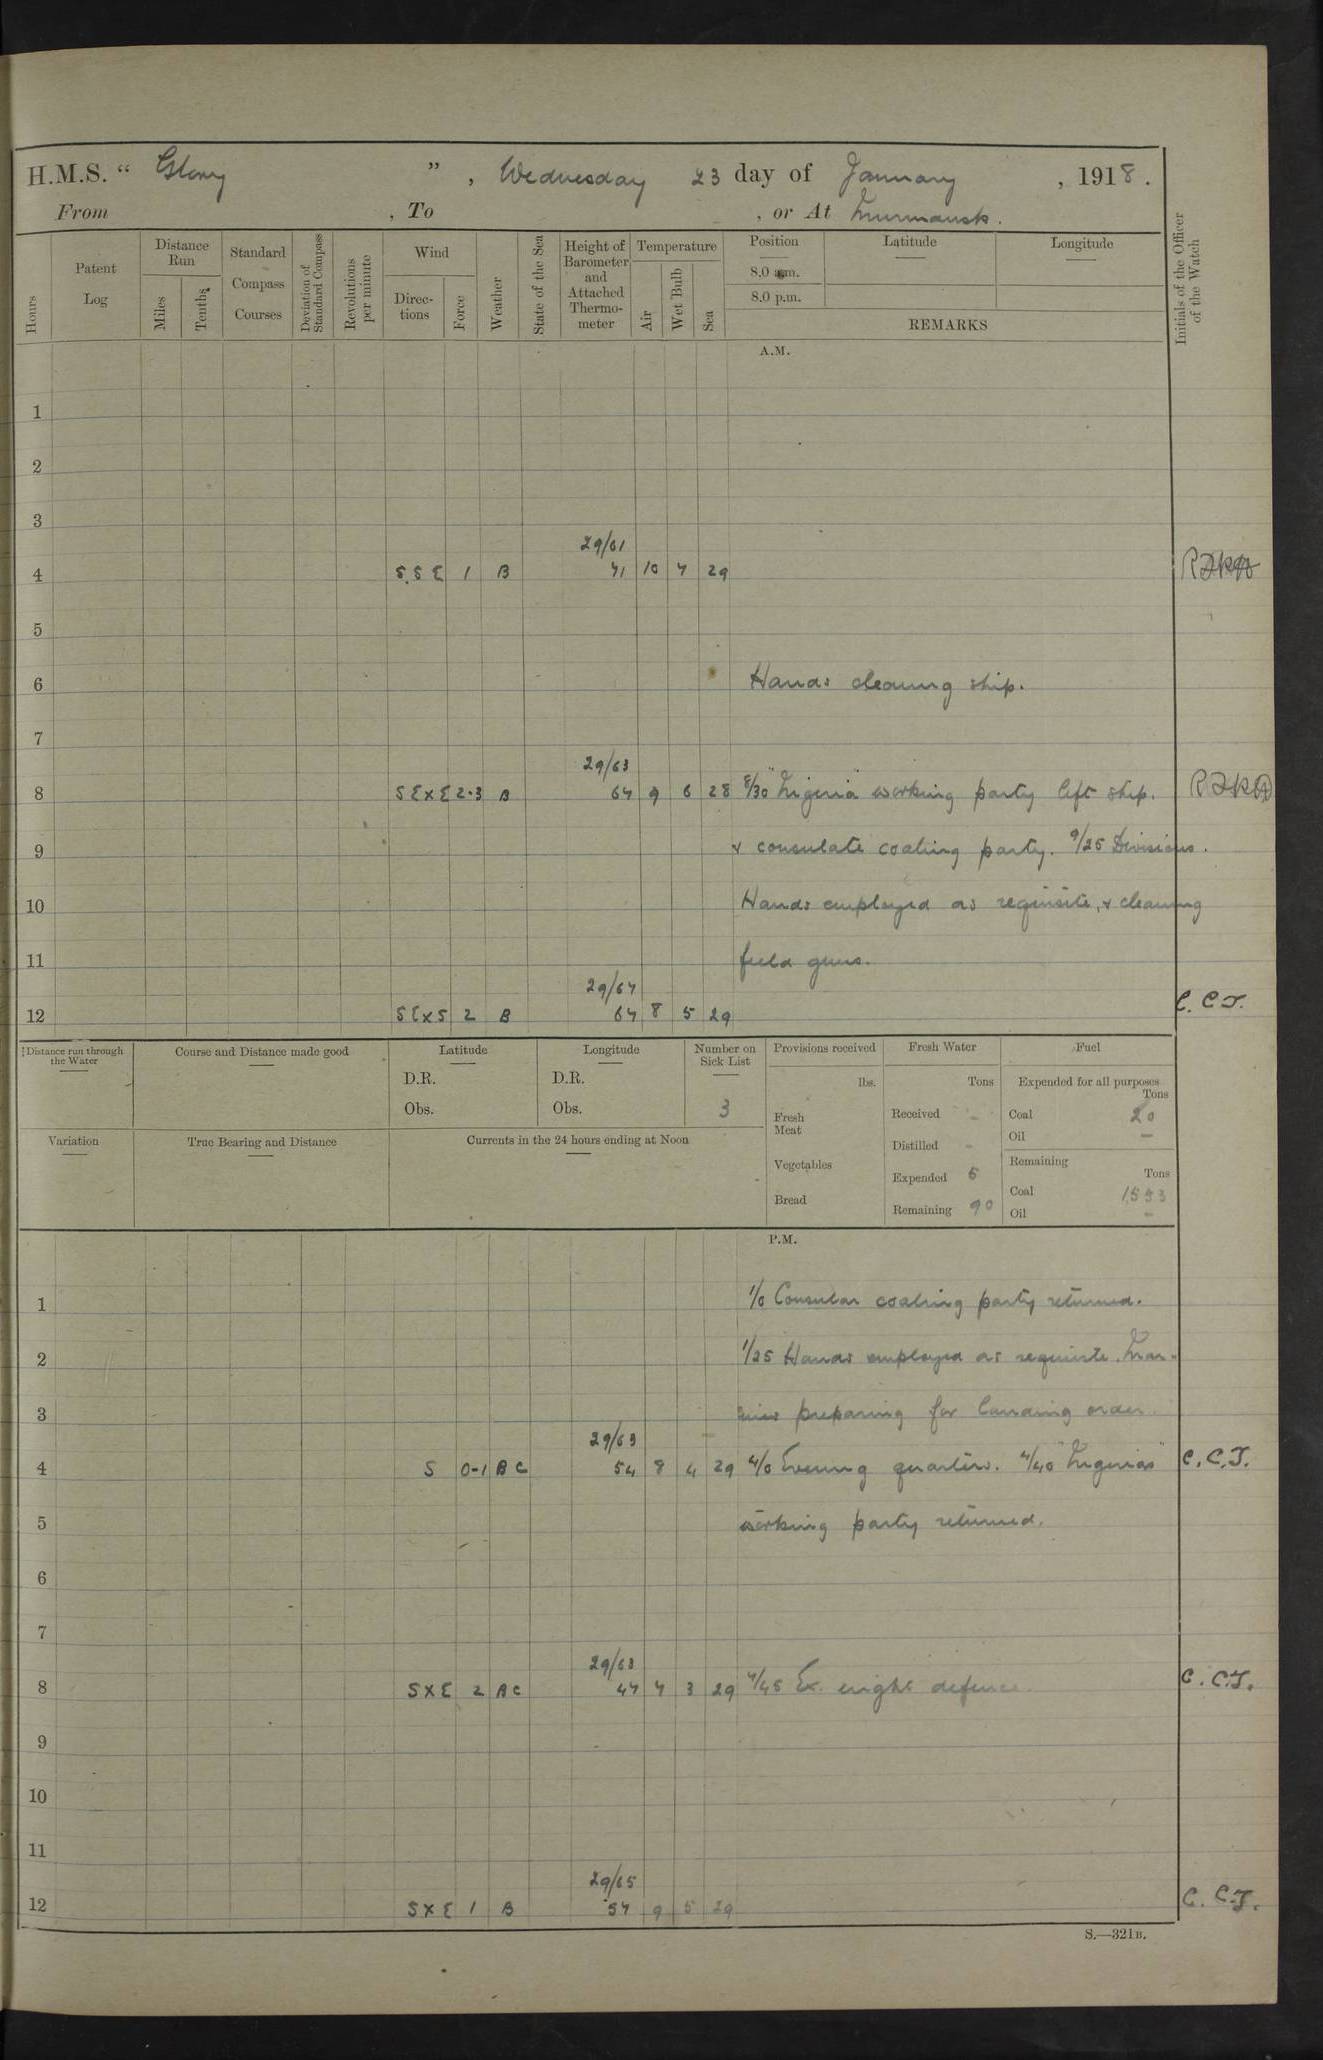 H.M.S. “ Glory ” , Wednesday 23 day of January , 1918 .
From , To , or At Murmansk.
Hours
Patent Log
Distance Run
Miles
Tenths
Standard Compass Courses
Deviation of Standard Compass
Revolutions per minute
Wind
Direc-tions
Force
Weather
State of the Sea
Height of Barometer and Attached Thermo-meter
Temperature
Air
Wet Bulb
Sea
Position
8.0 a.m.
8.0 p.m.
Latitude
Longitude
REMARKS
Initials of the Officer of the Watch
A.M.
1
2
3
29/61
4 S.S E 1 B 71 10 7 29
5
6 Hands cleaning ship.
7
29/63
8 SE x E 2-3 B 64 9 6 28 8/30 "Nigeria" working party left ship.
9 & consulate coaling party. 9/25 Divisions.
10 Hands employed as requisite, & cleaning
11 field guns.
29/67
12 SE x S 2 B 67 8 5 29 C.C.J.
Distance run through the Water
Course and Distance made good
Latitude
D.R.
Obs.
Longitude
D.R.
Obs.
Number on Sick List
3
Provisions received
lbs.
Fresh Meat
Vegetables
Bread
Fresh Water
Tons
Received -
Distilled -
Expended 5
Remaining 90
Fuel
Expended for all purposes
Tons
Coal 20
Oil —
Remaining
Tons
Coal 1553
Oil -
Variation
True Bearing and Distance
Currents in the 24 hours ending at Noon
P.M.
1 1/0 Consular coaling party returned.
2 1/25 Hands employed as requisite. Mar-
3 ines preparing for landing order.
29/63
4 S 0-1 BC 54 8 4 29 4/0 Evening quarters. 4/40 "Nigerias" C.C.J.
5 working party returned.
6
7
29/63
8 S x E 2 BC 47 7 3 29 7/45 Ex. night defence. C.C.J.
9
10
11
29/65
12 S x E 1 B 57 9 5 29 C.C.J.
S.—321B.